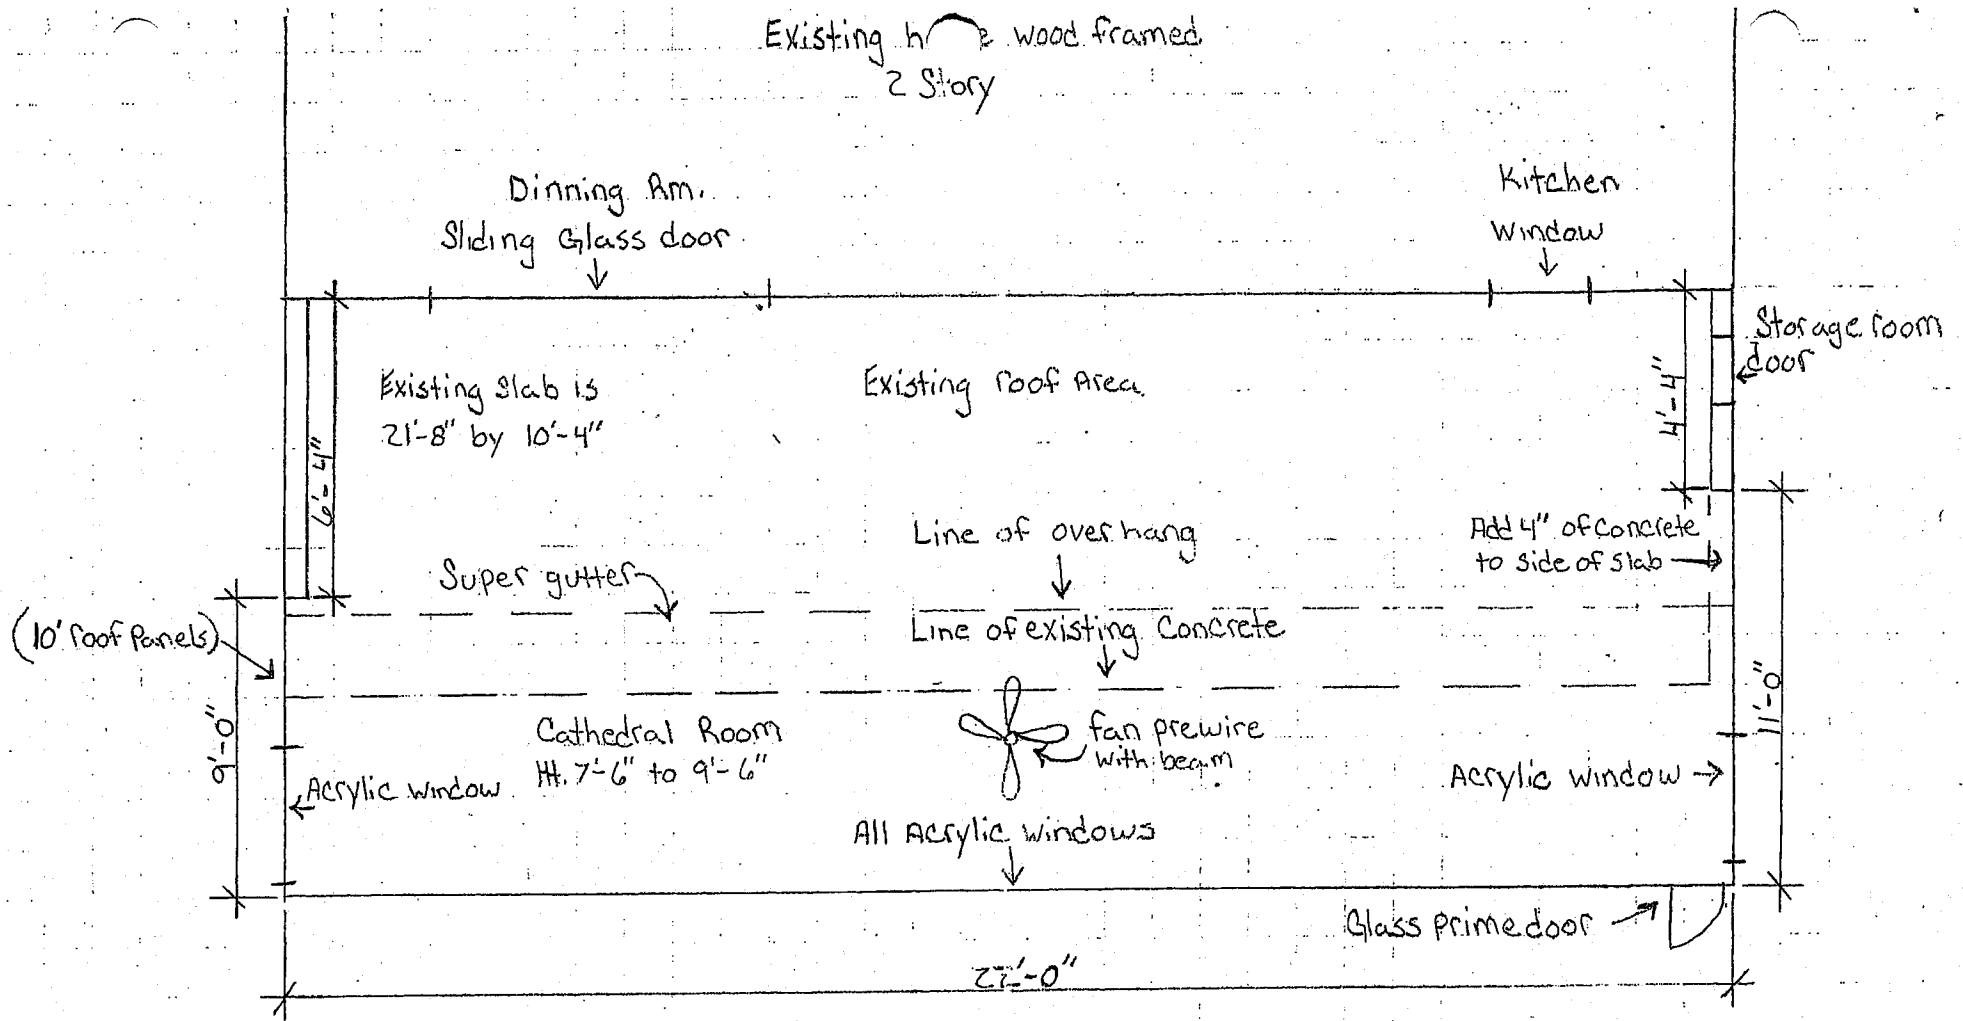 Existing h e wood framed
2 Story
Dinning Rm.
Sliding Glass door
Kitchen
Window
Storage room
door
Existing Slab is
21'-8" by 10'-4"
Existing roof Area
6'-4"
4'-4"
Line of over hang
Add 4" of Concrete
to side of slab
Super gutter
(10' roof Panels)
Line of existing Concrete
9'-0"
11'-0"
Cathedral Room
Ht. 7'-6" to 9'-6"
fan prewire
with beam
Acrylic window
Acrylic window
All Acrylic windows
Glass prime door
22'-0"